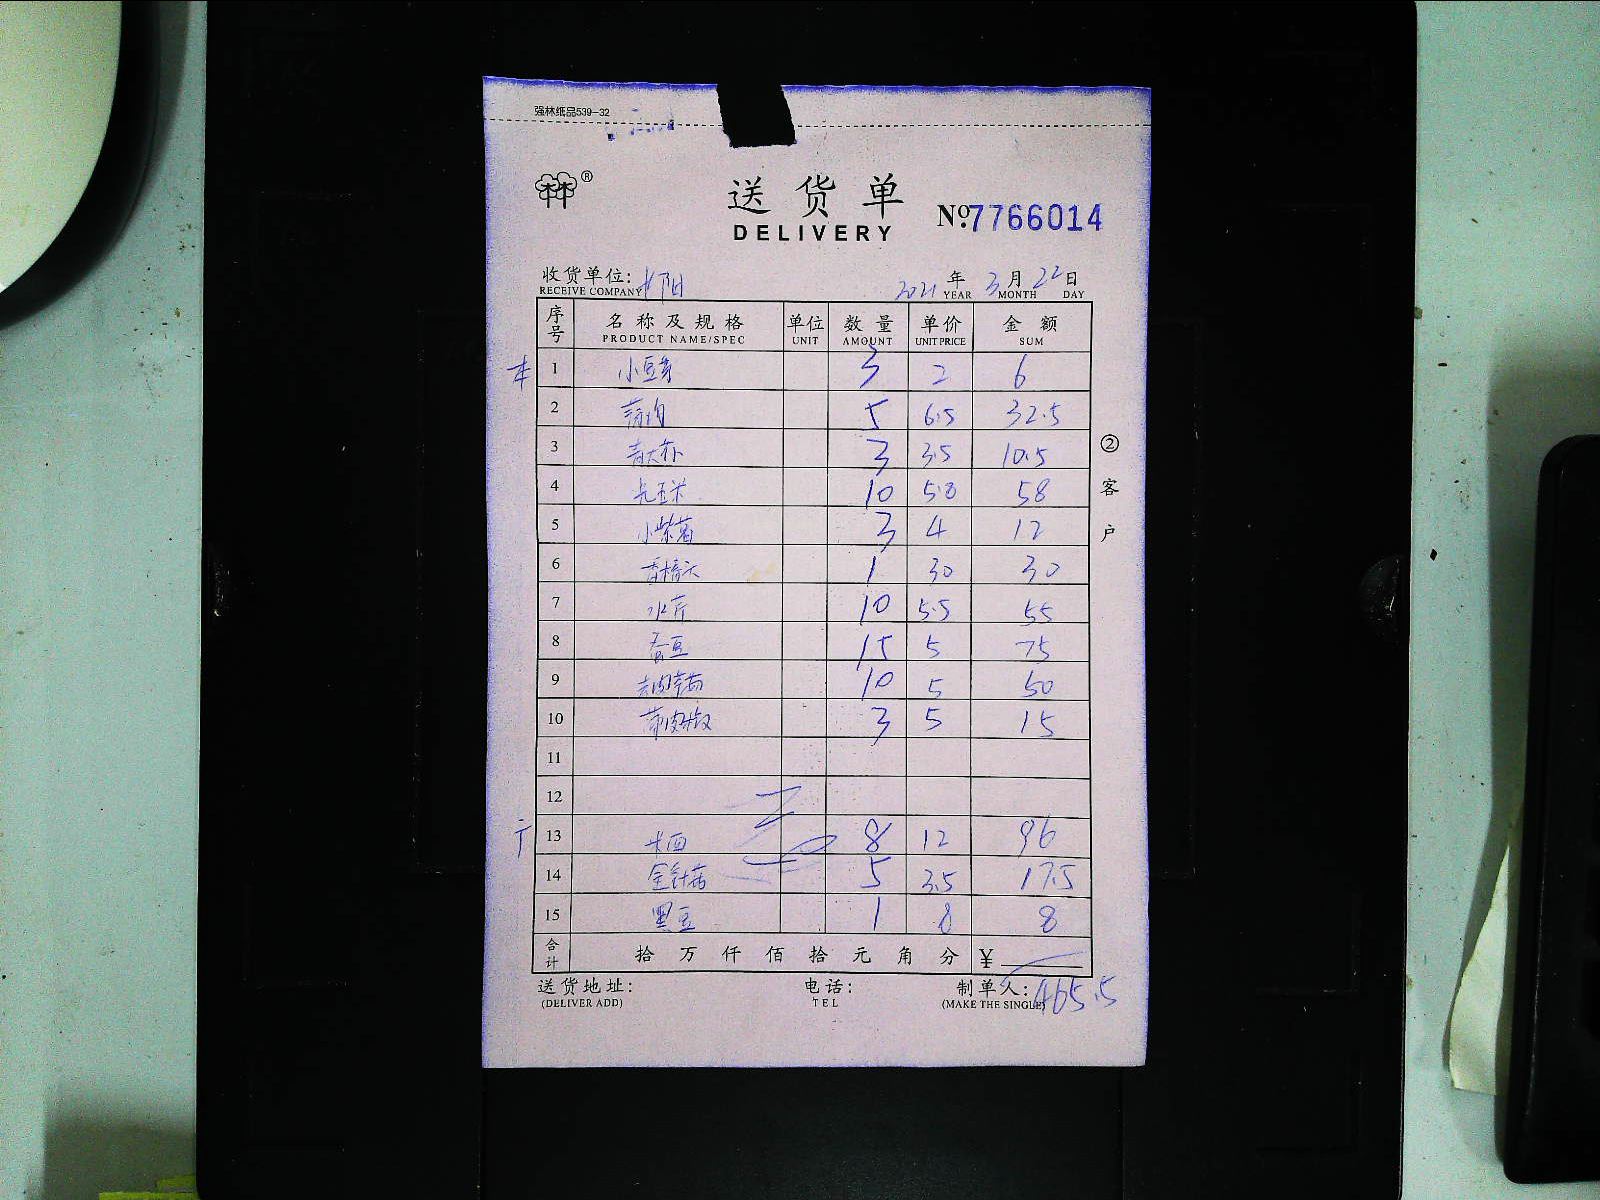 强林纸品539-32
®
送货单
DELIVERY
No:7766014
收货单位: 阳 2021年3月22日
RECEIVE COMPANY YEAR MONTH DAY
序号 名称及规格 单位 数量 单价 金额
PRODUCT NAME/SPEC UNIT AMOUNT UNIT PRICE SUM
1 小豆芽 3 2 6
2 5 6.5 32.5
3 3 3.5 10.5
4 玉米 10 5.8 58
5 3 4 12
6 1 30 30
7 水芹 10 5.5 55
8 蚕豆 15 5 75
9 10 5 50
10 3 5 15
11
12
13 8 12 96
14 金针菇 5 3.5 17.5
15 黑豆 1 8 8
合计 拾万仟佰拾元角分 ¥
465.5
送货地址: 电话: 制单人:
(DELIVER ADD) TEL (MAKE THE SINGLE)
②客户